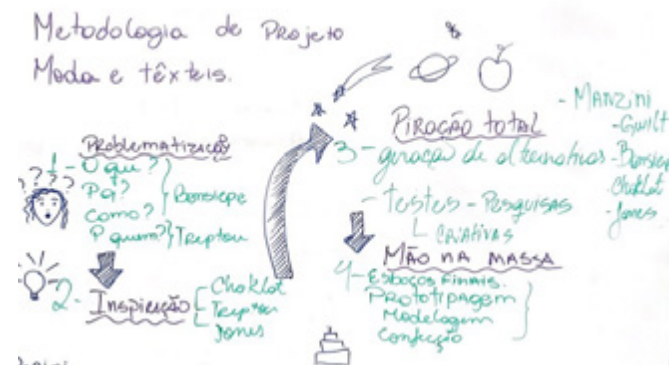 Metodologia de Projeto
Moda e têxteis.
Problematização
1- O que?
Pq?
Como?
P quem?
Bonsiepe
Treptow
2- Inspiração
Choklat
Treptow
Jones
Piração total
3- geração de alternativas
- testes - Pesquisas
Criativas
- Manzini
- Guilt
- Bonsiep
Choklat
- Jones
Mão na massa
4- Esboços Finais.
Prototipagem
Modelagem
Confecção